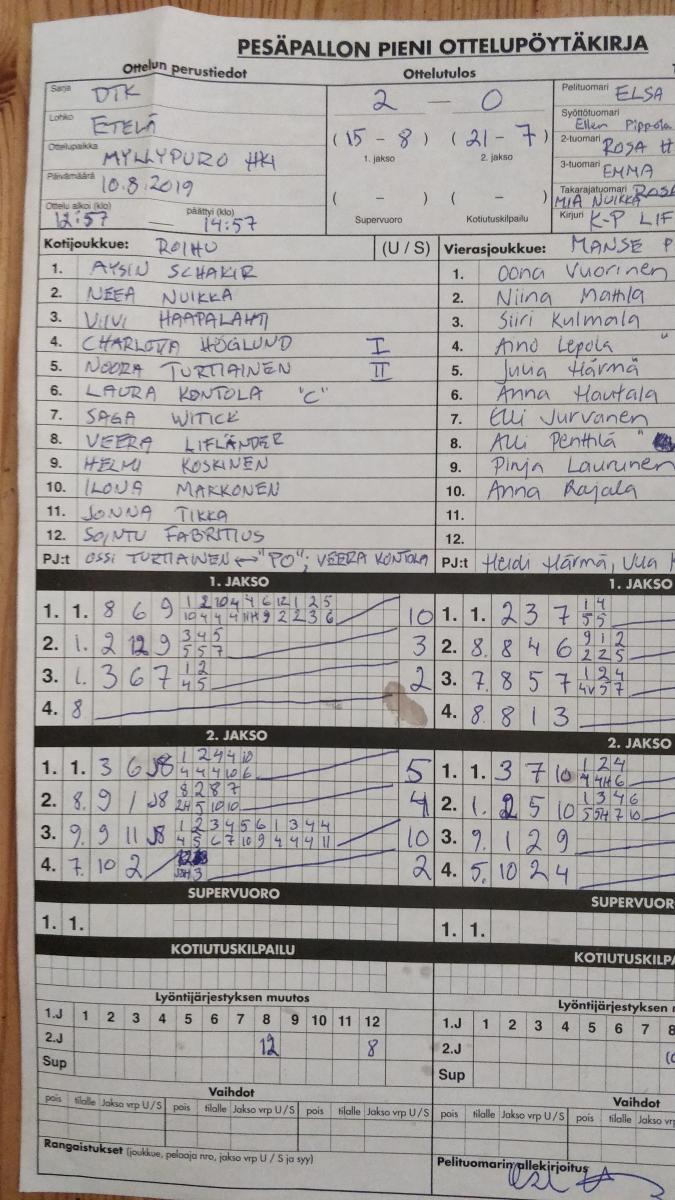 PESÄPALLON PIENI OTTELUPÖYTÄKIRJA
Ottelun perustiedot
Ottelutulos
Sarja DTK
Lohko ETELÄ
Ottelupaikka MYLLYPURO HKI
Päivämäärä 10.8.2019
Ottelu alkoi (klo) 12:57 — päättyi (klo) 14:57
2 — 0
(15 - 8) (21 - 7)
1. jakso 2. jakso
( - ) ( - )
Supervuoro Kotiutuskilpailu
Pelituomari ELSA
Syöttötuomari Ellen Pippola
2-tuomari ROSA H
3-tuomari EMMA
Takarajatuomari ROSA
MIA NUIKKA
Kirjuri K-P LIF
Kotijoukkue: ROIHU (U / S)
1. AYSIN SCHAKIR
2. NEEA NUIKKA
3. VIIVI HAAPALAHTI
4. CHARLOTTA HÖGLUND I
5. NOORA TURTIAINEN II
6. LAURA KONTOLA "C"
7. SAGA WITICK
8. VEERA LIFLÄNDER
9. HELMI KOSKINEN
10. ILONA MARKONEN
11. JONNA TIKKA
12. SOINTU FABRITIUS
PJ:t OSSI TURTIAINEN ↔ "PO"; VEERA KONTOLA
Vierasjoukkue: MANSE P
1. Oona Vuorinen
2. Niina Mattila
3. Siiri Kulmala
4. Aino Lepola "
5. Julia Härmä
6. Anna Hautala
7. Elli Jurvanen
8. Alli Penttilä "
9. Pinja Laurunen
10. Anna Rajala
11.
12.
PJ:t Heidi Härmä,
1. JAKSO
1. 1. 8 6 9 1 2 10 4 4 6 12 1 2 5 10
2. 1. 2 12 9 3 4 5 3
5 5 7
3. 1. 3 6 7 1 2 2
4 5
4. 8
1. JAKSO
1. 1. 2 3 7 1 4
5 5
2. 8. 8 4 6 9 1 2
2 2 5
3. 7. 8 5 7 1 2 4
4V 5 7
4. 8. 8 1 3
2. JAKSO
1. 1. 3 6 J8 1 2 4 4 10 5
4 4 4 10 6
2. 8. 9 1 J8 8 2 8 7 4
2H 5 10 10
3. 9. 9 11 J8 1 2 3 4 5 6 1 3 4 4 10
4 5 6 7 10 9 4 4 4 11
4. 7. 10 2 2
2. JAKSO
1. 1. 3 7 10 1 2 4
4 4H 6
2. 1. 2 5 10 1 3 4 6
5 5H 7 10
3. 9. 1 2 9
4. 5. 10 2 4
SUPERVUORO
1. 1.
SUPERVUOR
1. 1.
KOTIUTUSKILPAILU
KOTIUTUSKILPA
Lyöntijärjestyksen muutos
1.J 1 2 3 4 5 6 7 8 9 10 11 12
2.J 12 8
Sup
Lyöntijärjestyksen
1.J 1 2 3 4 5 6 7 8
2.J
Sup
Vaihdot
pois tilalle Jakso vrp U/S pois tilalle Jakso vrp U/S pois tilalle Jakso vrp U/S
Vaihdot
pois tilalle Jakso vrp U/S pois tilalle Jakso vrp
Rangaistukset (joukkue, pelaaja nro, jakso vrp U / S ja syy)
Pelituomarin allekirjoitus